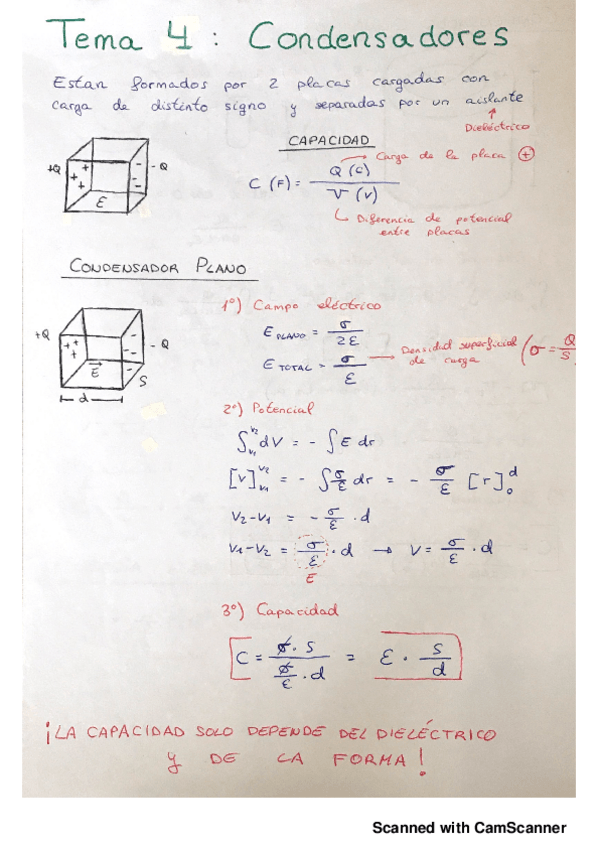 Tema 4 : Condensadores
Estan formados por 2 placas cargadas con
carga de distinto signo y separadas por un aislante
Dieléctrico
CAPACIDAD
Carga de la placa ⊕
C (F) = Q (C) / V (V)
Diferencia de potencial
entre placas
+Q
- Q
ε
CONDENSADOR PLANO
+Q
- Q
E
S
d
1º) Campo eléctrico
E PLANO = σ / 2ε
E TOTAL = σ / ε
Densidad superficial
de carga
(σ = Q/S
2º) Potencial
∫V1V2 dV = - ∫E dr
[V]V1V2 = - ∫σ/ε dr = - σ/ε [r]0d
V2-V1 = - σ/ε · d
V1-V2 = σ/ε · d → V = σ/ε · d
E
3º) Capacidad
C = σ · S / σ/ε · d = ε · S/d
¡LA CAPACIDAD SOLO DEPENDE DEL DIELÉCTRICO
y DE LA FORMA!
Scanned with CamScanner